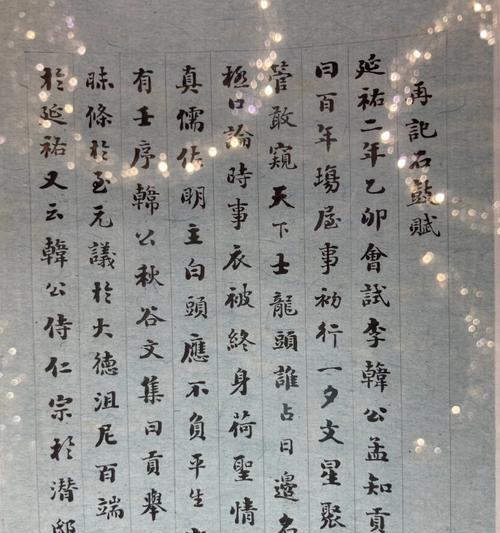 再記石鼓賦
延祐二年乙卯會試李韓公孟知貢
曰百年塲屋事初行一夕文星聚
管敢窺天下士龍頭誰占日邊名
極口論時事衣被終身荷聖情
真儒佐明主白頭應不負平生
有壬序韓公秋谷文集曰貢舉
昧條於至元議於大德沮尼百端
於延祐又云韓公侍仁宗於潜邸